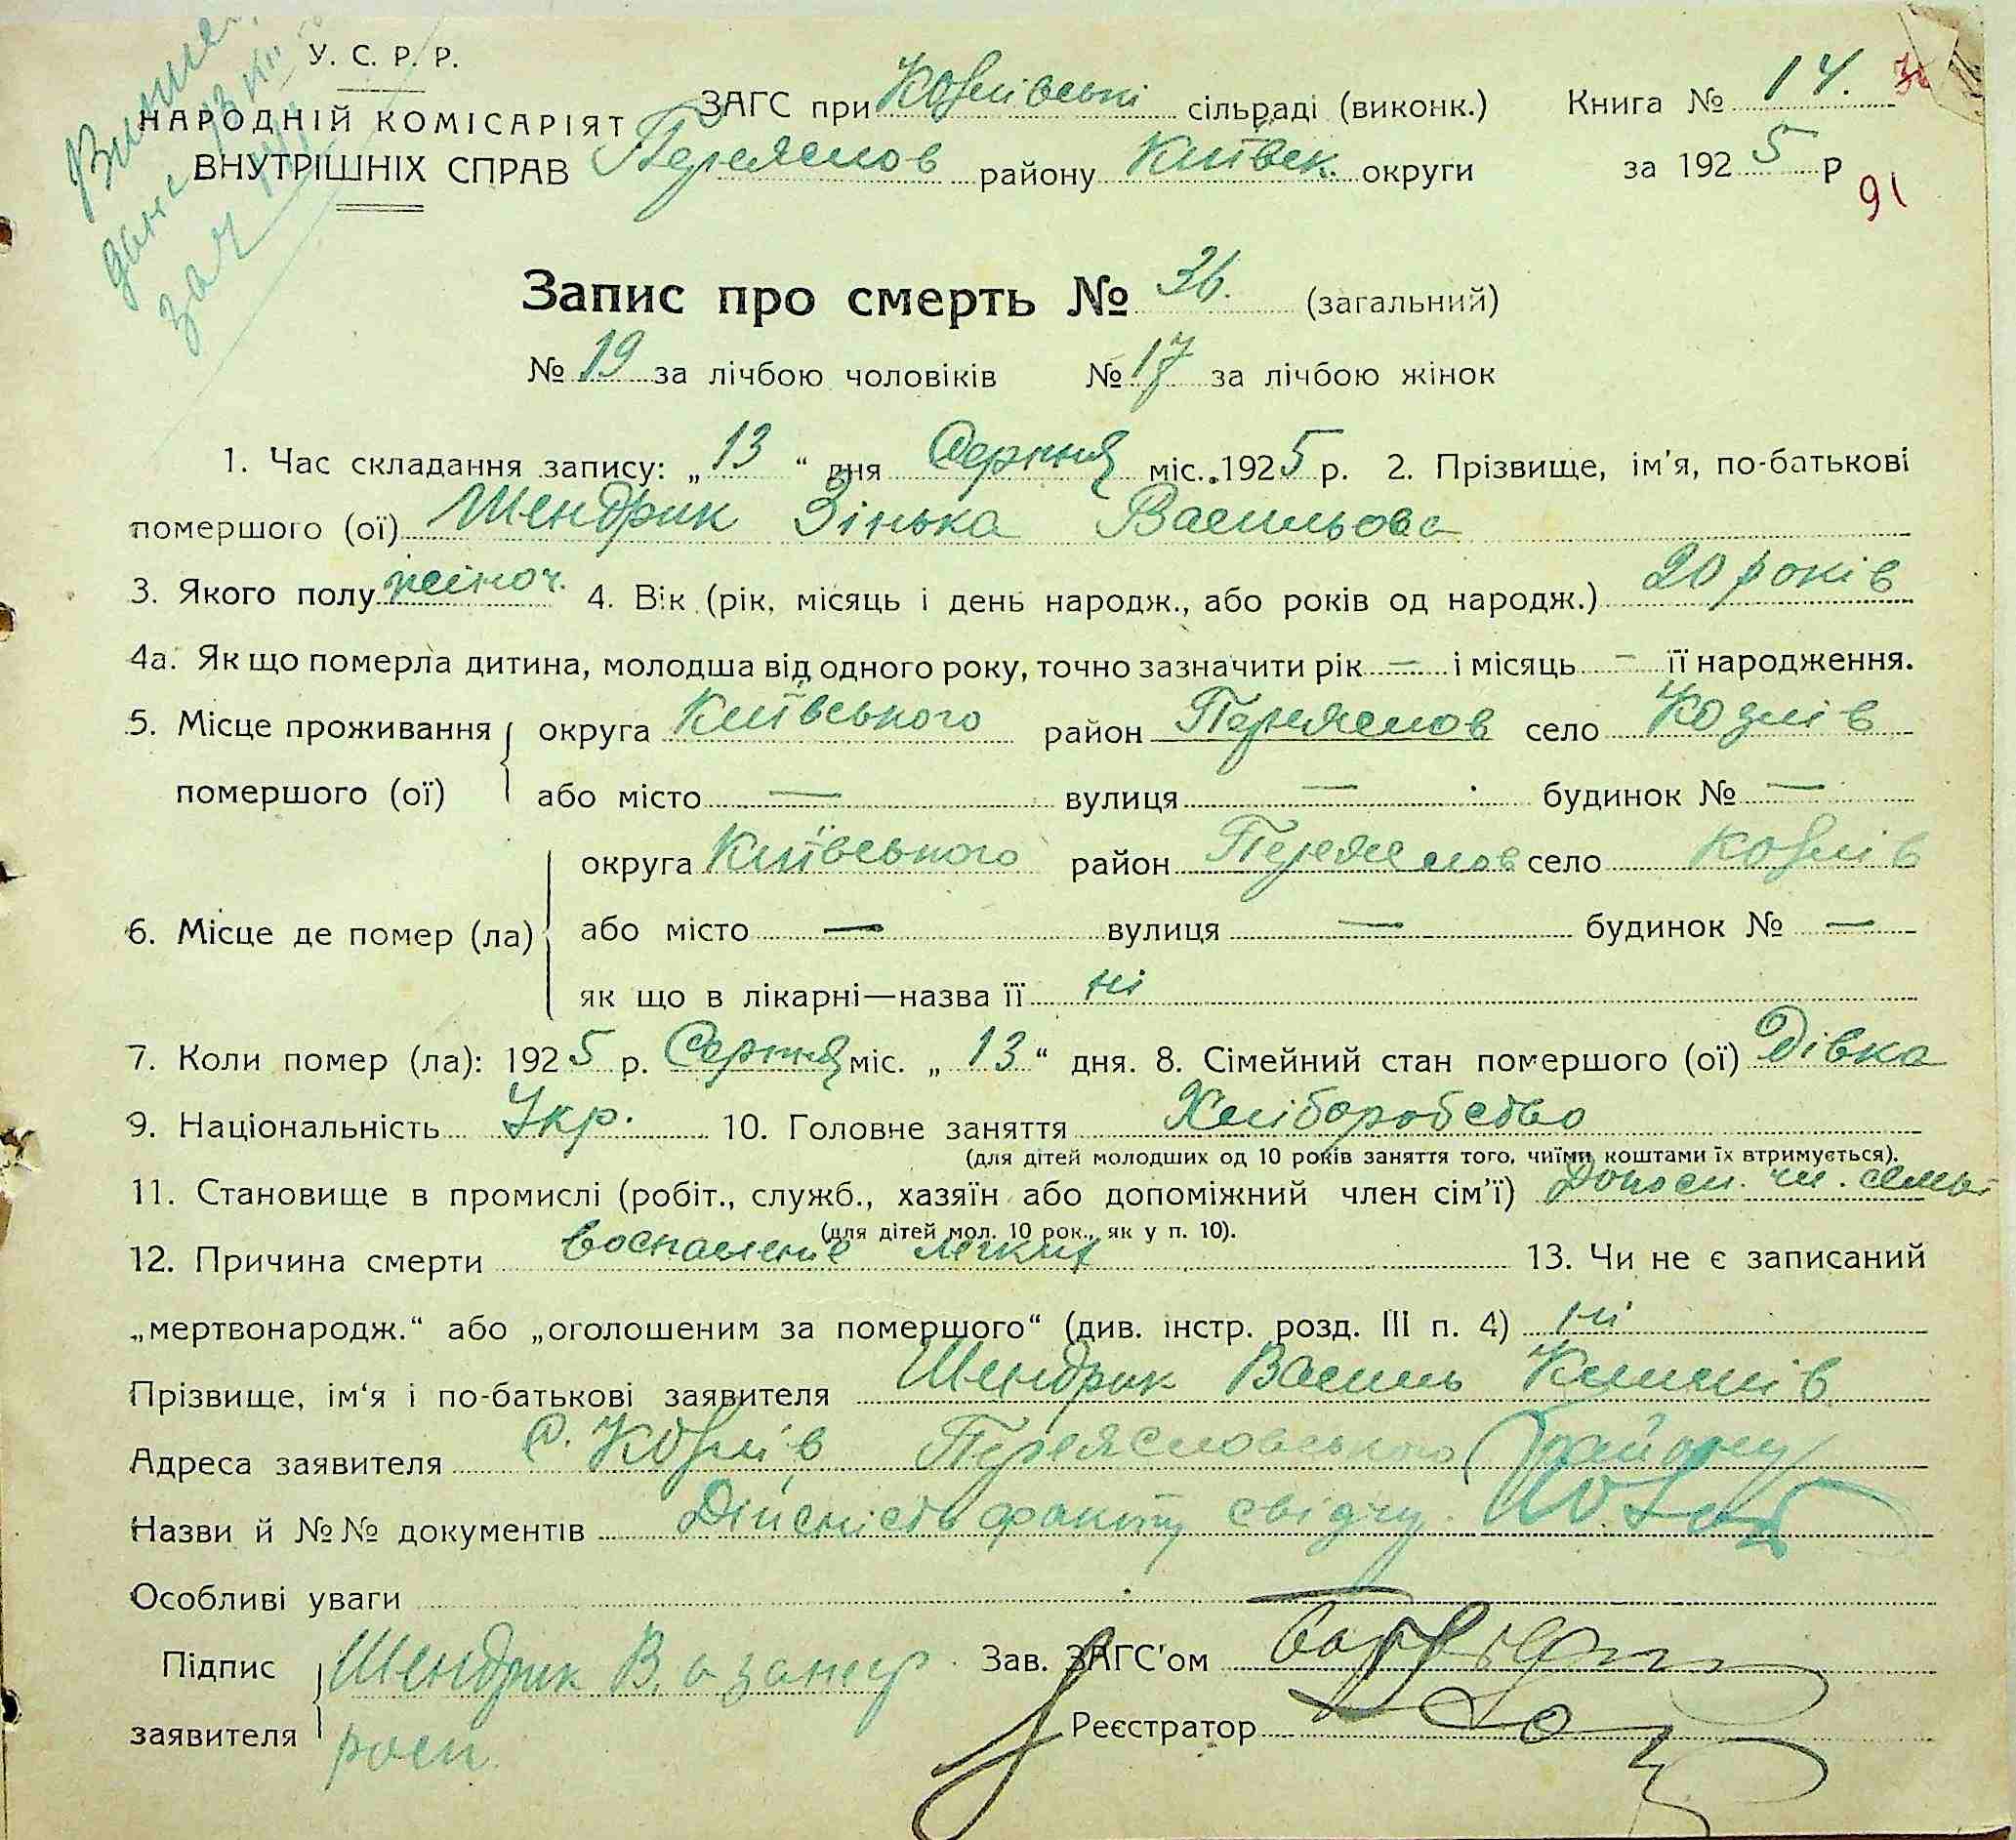 У. С. Р. Р.
НАРОДНІЙ КОМІСАРІЯТ
ВНУТРІШНІХ СПРАВ
ЗАГС при Козлівські сільраді (виконк.)
Переяслов району Київськ. округи
Книга № 14.
за 1925 р
91
Запис про смерть № 36. (загальний)
№ 19 за лічбою чоловіків № 17 за лічбою жінок
1. Час складання запису: „13“ дня Серпня міс. 1925 р. 2. Прізвище, ім'я, по-батькові
помершого (ої) Шендрик Зінька Васильова
3. Якого полу жіноч. 4. Вік (рік, місяць і день народж., або років од народж.) 20 років
4а. Як що померла дитина, молодша від одного року, точно зазначити рік — і місяць — її народження.
5. Місце проживання помершого (ої) округа Київського район Переяслов село Козлів
або місто — вулиця — будинок № —
6. Місце де помер (ла) округа Київського район Переяслов село Козлів
або місто — вулиця — будинок № —
як що в лікарні—назва її ні
7. Коли помер (ла): 1925 р. Серпня міс. „13“ дня. 8. Сімейний стан помершого (ої) Дівка
9. Національність Укр. 10. Головне заняття Хліборобство
(для дітей молодших од 10 років заняття того, чиїми коштами їх втримується).
11. Становище в промислі (робіт., служб., хазяїн або допоміжний член сім'ї) чл. семьі
(для дітей мол. 10 рок., як у п. 10).
12. Причина смерти воспаление легких 13. Чи не є записаний
„мертвонародж.“ або „оголошеним за помершого“ (див. інстр. розд. III п. 4) ні
Прізвище, ім'я і по-батькові заявителя Шендрик Василь Климів
Адреса заявителя с. Козлів Переясловського району
Назви й №№ документів Дійсність факту свідчу.
Особливі уваги
Підпис заявителя Шендрик В. а за негр
росп.
Зав. ЗАГС'ом
Реєстратор